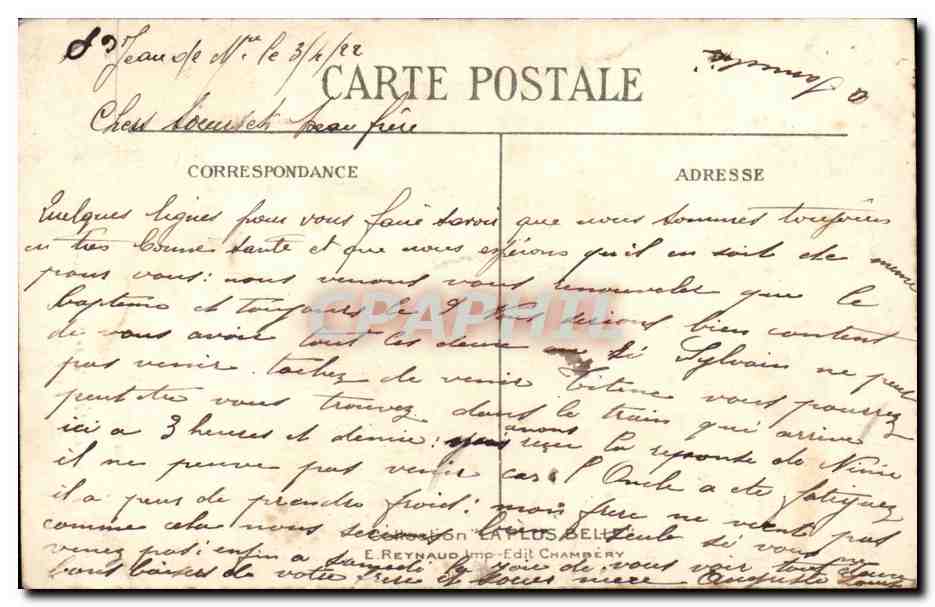 St Jean de Mne le 3/4/22
CARTE POSTALE
Famille
Chers soeur et beau frère
CORRESPONDANCE
ADRESSE
Quelques lignes pour vous faire savoir que nous sommes toujours
en très bonne santé et que nous espérons qu'il en soit de meme
pour vous: nous venons vous renouveler que le
bapteme et toujours le 9 Nous serions bien content
de vous avoir tout les deux si Sylvain ne peut
pas venir. tachez de venir Titine vous pourrez
peut etre vous trouvez dans le train qui arrive
ici a 3 heures et demie; nous avons reçu la reponse de Ninie
il ne peuve pas venir car l'Oncle a été fatiguez
il a peur de prendre froid; mon frere ne vient pas
comme cela nous serions bien seule si vous ne
venez pas; enfin a samedi la joie de vous voir tout deux
bons baisers de votre frere et soeur Auguste
Collection "LA PLUS BELLE"
E. REYNAUD Imp-Edit CHAMBÉRY
CPAPHIL